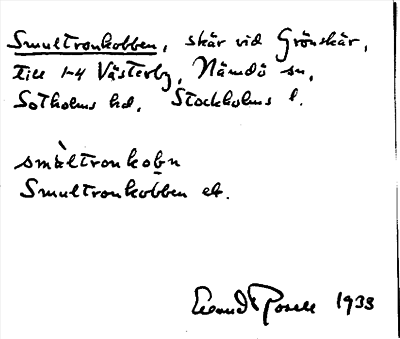 Smultronkobben, skär vid Grönskär,
till 1-4 Västerby, Nämdö sn,
Sotholms hd, Stockholms l.
smàltronkobn
Smultronkobben ek.
1933